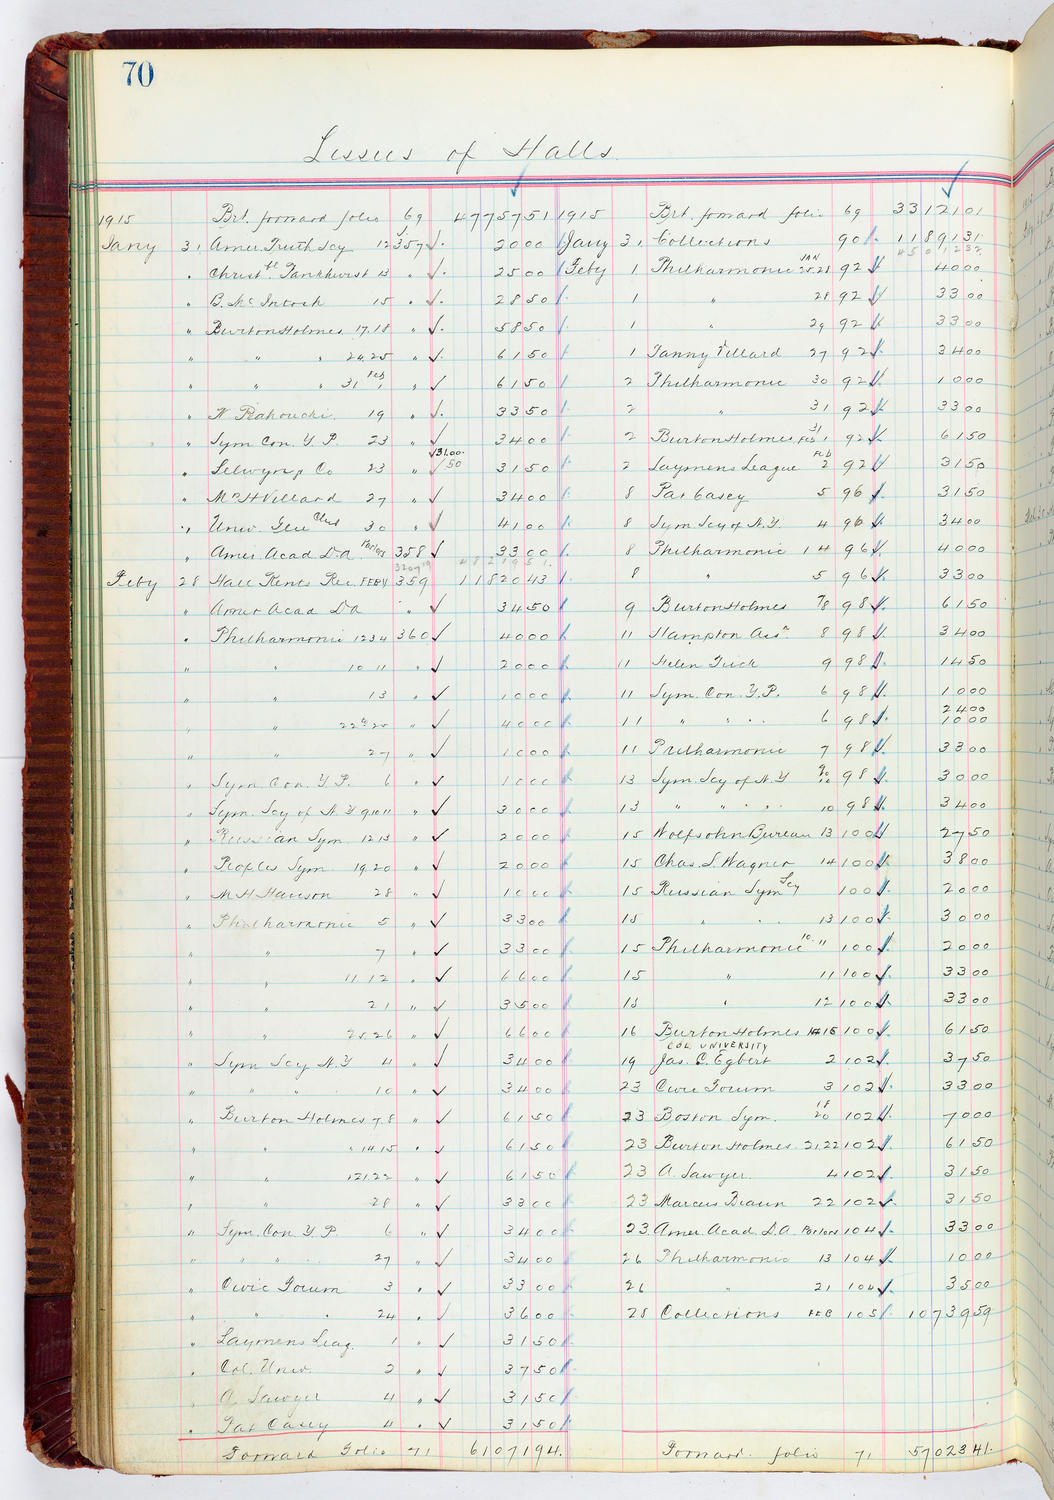 70
Lessees of Halls
1915 Brt. forward folio 69 4775751 1915 Brt. forward folio 69 3312101
Jany 31 Amer Truth Scy 12 357 2000 Jany 31 Collections 90 1189131
" Christbl Pankhurst 13 " 2500 Feby 1 Philharmonic JAN 92 4000
" B. McIntosh 15 " 2850 1 " 28 92 3300
" Burton Holmes 17.18 " 5850 1 " 29 92 3300
" " " 24.25 " 6150 1 Fanny Villard 27 92 3400
" " " 31 Feb 1 " 6150 2 Philharmonic 30 92 1000
" 19 " 3350 2 " 31 92 3300
" Sym Con. Y.P. 23 " 3400 2 Burton Holmes 31 Feb 1 92 6150
" Selwyn & Co 23 " 3100 50 3150 2 Laymens League Feb 2 92 3150
" Mrs H Villard 27 " 3400 8 Pat Casey 5 96 3150
" Univ. Glee Club 30 " 4100 8 Sym Scy of N.Y. 4 96 3400
" Amer. Acad D.A. Parlors 358 3300 8 Philharmonic 14 96 4000
Feby 28 Hall Rents Rec. FEBY 359 1182043 8 " 5 96 3300
" Amer Acad DA " 3450 9 Burton Holmes 7/8 98 6150
" Philharmonic 1234 360 4000 11 Hampton Assn. 8 98 3400
" " 10 11 " 2000 11 Helen 9 98 1450
" " 13 " 1000 11 Sym. Con. Y.P. 6 98 1000
" " 22 " 4000 11 " " " " 6 98 2400 1000
" " 27 " 1000 11 Philharmonic 7 98 3300
" Sym Con. Y.P. 6 " 1000 13 Sym. Scy of N.Y 98 3000
" Sym. Scy of N.Y 9 10 11 " 3000 13 " " " " 10 98 3400
" Russian Sym 12 13 " 2000 15 Wolfsohn Bureau 13 100 2750
" Peoples Sym 19.20 " 2000 15 Chas. L Wagner 14 100 3800
" M H Hanson 28 " 1000 15 Russian Sym Scy 100 2000
" Philharmonic 5 " 3300 15 " " " 13 100 3000
" " 7 " 3300 15 Philharmonic 10. 11 100 2000
" " 11 12 " 6600 15 " 11 100 3300
" " 21 " 3500 15 " 12 100 3300
" " 25.26 " 6600 16 Burton Holmes 14 15 100 6150
COL. UNIVERSITY
" Sym Scy N.Y 4 " 3400 19 Jas. C. Egbert 2 102 3750
" " " 10 " 3400 23 Civic Forum 3 102 3300
" Burton Holmes 7.8 " 6150 23 Boston Sym. 18 20 102 7000
" " " 14 15 " 6150 23 Burton Holmes 21,22 102 6150
" " 22 " 6150 23 A. Sawyer 4 102 3150
" " 28 " 3300 23 Marcus Braun 22 102 3150
" Sym. Con Y P. 6 " 3400 23 Amer Acad D.A. Parlors 104 3300
" " " " 27 " 3400 26 Philharmonic 13 104 1000
" Civic Forum 3 " 3300 26 " 21 104 3500
" " " 24 " 3600 28 Collections FEB 105 1073959
" Laymens Leag. 1 " 3150
" Col. Univ. 2 " 3750
" A Sawyer 4 " 3150
" Pat Casey 4 " 3150
Forward Folio 71 6107194. Forward. folio 71 5702341.